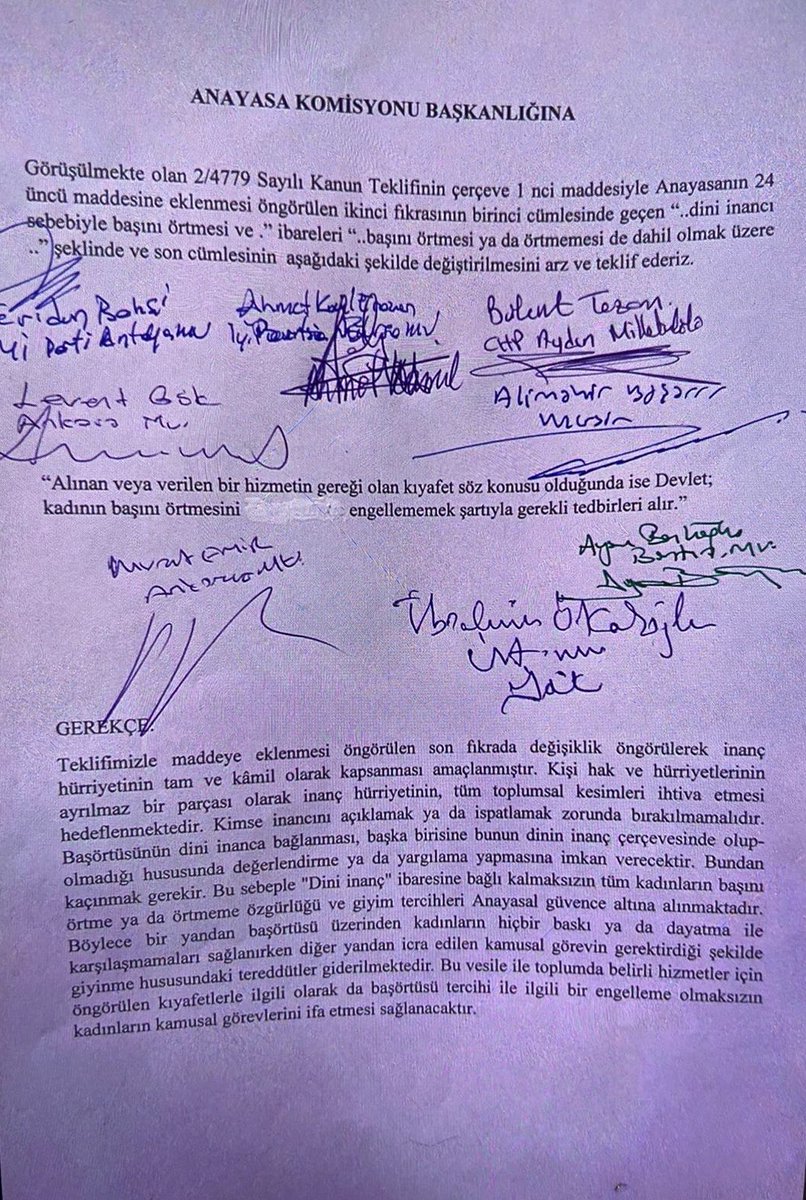 ANAYASA KOMİSYONU BAŞKANLIĞINA
Görüşülmekte olan 2/4779 Sayılı Kanun Teklifinin çerçeve 1 nci maddesiyle Anayasanın 24
üncü maddesine eklenmesi öngörülen ikinci fıkrasının birinci cümlesinde geçen “..dini inancı
sebebiyle başını örtmesi ve .” ibareleri “..başını örtmesi ya da örtmemesi de dahil olmak üzere
..” şeklinde ve son cümlesinin aşağıdaki şekilde değiştirilmesini arz ve teklif ederiz.
Bahşi
Parti Antalya
Ahmet
Bülent Tezcan
CHP Aydın Milletvekili
Levent Gök
Ankara Mv.
Ali Mahir Başarır
Mersin
“Alınan veya verilen bir hizmetin gereği olan kıyafet söz konusu olduğunda ise Devlet;
kadının başını örtmesini engellememek şartıyla gerekli tedbirleri alır.”
Murat Emir
Ankara Mv.
Mv.
İbrahim
GEREKÇE:
Teklifimizle maddeye eklenmesi öngörülen son fıkrada değişiklik öngörülerek inanç
hürriyetinin tam ve kâmil olarak kapsanması amaçlanmıştır. Kişi hak ve hürriyetlerinin
ayrılmaz bir parçası olarak inanç hürriyetinin, tüm toplumsal kesimleri ihtiva etmesi
hedeflenmektedir. Kimse inancını açıklamak ya da ispatlamak zorunda bırakılmamalıdır.
Başörtüsünün dini inanca bağlanması, başka birisine bunun dinin inanç çerçevesinde olup-
olmadığı hususunda değerlendirme ya da yargılama yapmasına imkan verecektir. Bundan
kaçınmak gerekir. Bu sebeple "Dini inanç" ibaresine bağlı kalmaksızın tüm kadınların başını
örtme ya da örtmeme özgürlüğü ve giyim tercihleri Anayasal güvence altına alınmaktadır.
Böylece bir yandan başörtüsü üzerinden kadınların hiçbir baskı ya da dayatma ile
karşılaşmamaları sağlanırken diğer yandan icra edilen kamusal görevin gerektirdiği şekilde
giyinme hususundaki tereddütler giderilmektedir. Bu vesile ile toplumda belirli hizmetler için
öngörülen kıyafetlerle ilgili olarak da başörtüsü tercihi ile ilgili bir engelleme olmaksızın
kadınların kamusal görevlerini ifa etmesi sağlanacaktır.